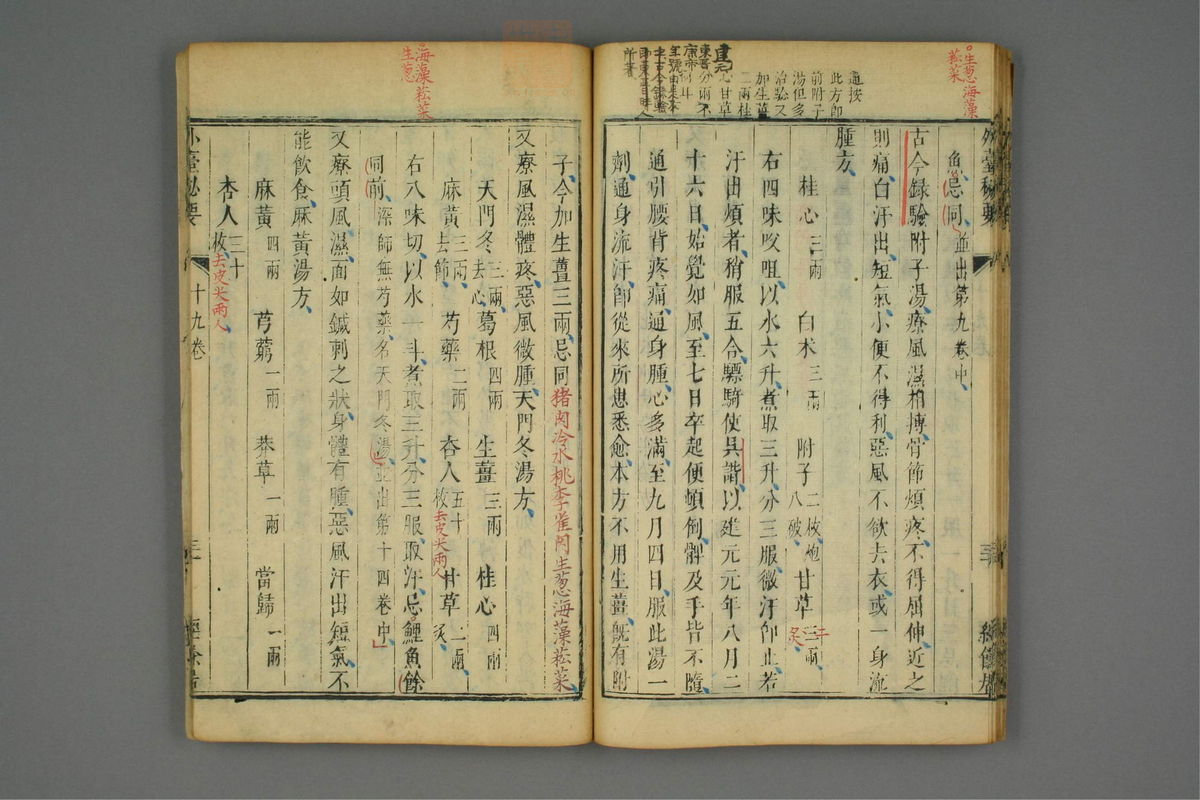 生葱海藻
菘菜
魚忌同並出第九卷中
古今録驗附子湯療風濕相摶骨節煩疼不得屈伸近之
則痛白汗出短氣小便不得利惡風不欲去衣或一身流
腫方
桂心三兩 白术三兩 附子二枚炮八破 甘草三兩炙
右四味㕮咀以水六升煮取三升分三服微汗即止若
汗出煩者稍服五合驃騎使吳諧以建元元年八月二
十六日始覺如風至七日卒起便頓倒髀及手皆不隨
通引腰背疼痛通身腫心多滿至九月四日服此湯一
劑通身流汗即從來所患悉愈本方不用生薑既有附
通按
此方即
前附子
湯但多
加生薑
二兩桂
心甘草
分兩不
建元
東晉
康帝
年號
所著
海藻菘菜
生葱
子今加生薑三兩忌同猪肉冷水桃李雀肉生葱海藻菘菜
又療風濕體疼惡風微腫天門冬湯方
天門冬三兩去心 葛根四兩 生薑三兩 桂心四兩
麻黃三兩去節 芍藥二兩 杏人五十枚去皮尖兩人 甘草二兩炙
右八味切以水一斗煮取三升分三服取汗忌鯉魚餘
同前深師無芍藥名天門冬湯並出第十四卷中
又療頭風濕面如鍼刺之狀身體有腫惡風汗出短氣不
能飲食麻黃湯方
麻黃四兩 芎藭一兩 莽草一兩 當歸一兩
杏人三十枚去皮尖兩人
外臺秘要 十九卷